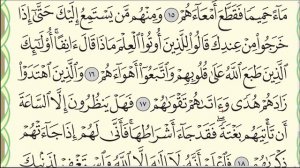 مَآءً حَمِيمًا فَقَطَّعَ أَمْعَآءَهُمْ ١٥ وَمِنْهُم مَّن يَسْتَمِعُ إِلَيْكَ حَتَّىٰٓ إِذَا
خَرَجُوا۟ مِنْ عِندِكَ قَالُوا۟ لِلَّذِينَ أُوتُوا۟ ٱلْعِلْمَ مَاذَا قَالَ ءَانِفًا ۚ أُو۟لَٰٓئِكَ
ٱلَّذِينَ طَبَعَ ٱللَّهُ عَلَىٰ قُلُوبِهِمْ وَٱتَّبَعُوٓا۟ أَهْوَآءَهُمْ ١٦ وَٱلَّذِينَ ٱهْتَدَوْا۟
زَادَهُمْ هُدًى وَءَاتَىٰهُمْ تَقْوَىٰهُمْ ١٧ فَهَلْ يَنظُرُونَ إِلَّا ٱلسَّاعَةَ
أَن تَأْتِيَهُم بَغْتَةً ۖ فَقَدْ جَآءَ أَشْرَاطُهَا ۚ فَأَنَّىٰ لَهُمْ إِذَا جَآءَتْهُمْ
ذِكْرَىٰهُمْ ١٨ فَٱعْلَمْ أَنَّهُۥ لَآ إِلَٰهَ إِلَّا ٱللَّهُ وَٱسْتَغْفِرْ لِذَنۢبِكَ